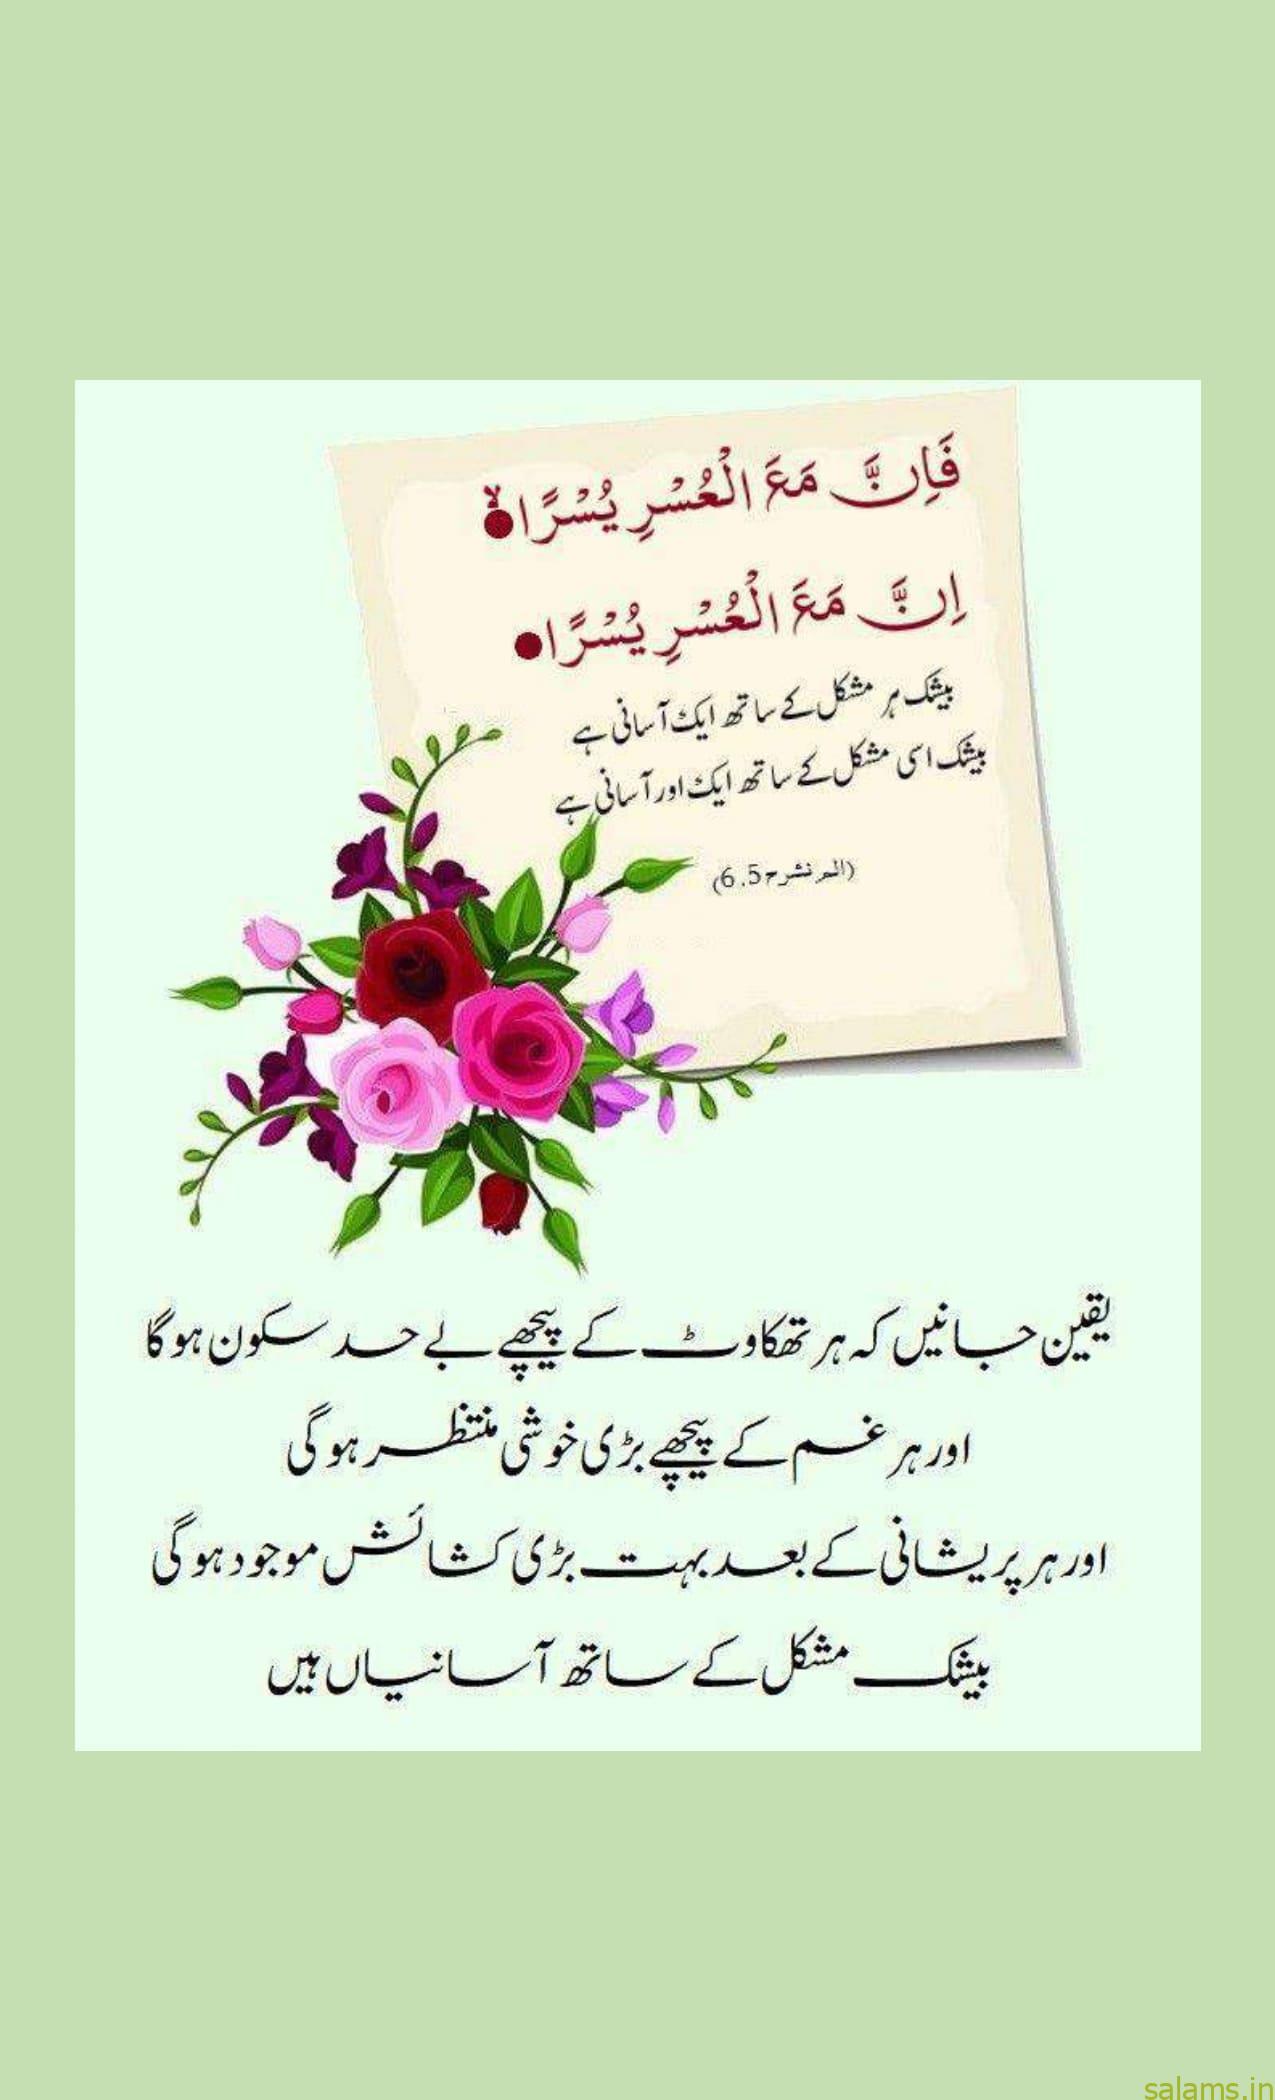 فَاِنَّ مَعَ الْعُسْرِ يُسْرًاۙ
اِنَّ مَعَ الْعُسْرِ يُسْرًا
بیشک ہر مشکل کے ساتھ ایک آسانی ہے
بیشک اسی مشکل کے ساتھ ایک اور آسانی ہے
(الم نشرح 6.5)
یقین جانیں کہ ہر تھکاوٹ کے پیچھے بے حد سکون ہوگا
اور ہر غم کے پیچھے بڑی خوشی منتظر ہوگی
اور ہر پریشانی کے بعد بہت بڑی کشائش موجود ہوگی
بیشک مشکل کے ساتھ آسانیاں ہیں
salams.in